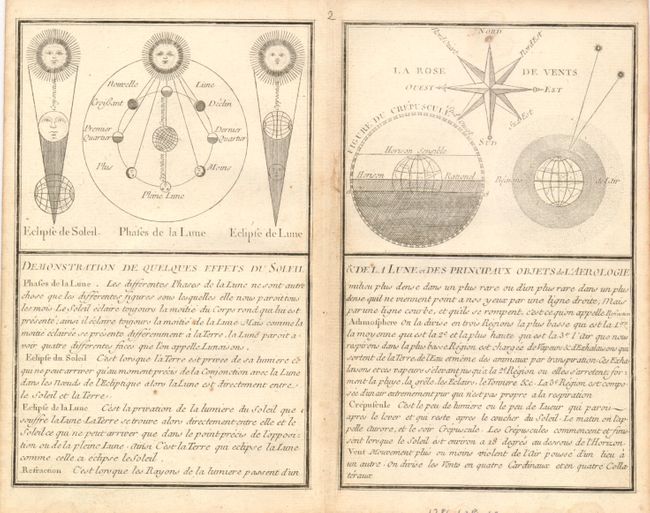 2
Nouvelle Lune
Croissant Déclin
Premier Quartier
Dernier Quartier
Plus Moins
Pleine Lune
Eclipse de Soleil. Phases de la Lune Eclipse de Lune
NORD
Nord Est
LA ROSE DE VENTS
OUEST EST
Sud Est
SUD
FIGURE DU CREPUSCULE
Horison Sensible
Horison Rationel
Régions de l'air
DEMONSTRATION DE QUELQUES EFFETS DU SOLEIL
Phases de la Lune. Les différentes Phases de la Lune ne sont autre
chose que les différentes figures sous lesquelles elle nous paroit tous
les mois. Le Soleil éclaire toujours la moitié du Corps rond qui lui est
présenté; ainsi il éclaire toujours la moitié de la Lune Mais comme la
moitié éclairée se présente différemment à la Terre, la Lune paroit a
voir quatre différentes faces que l'on appelle Lunaisons.
Eclipse du Soleil C'est lorsque la Terre est privée de sa lumiere ce
qui ne peut arriver qu'au moment précis de la Conjonction avec la Lune
dans les Nœuds de l'Ecliptique alors la Lune est directement entre
le Soleil et la Terre.
Eclipse de la Lune C'est la privation de la lumiere du Soleil que
souffre la Lune. La Terre se trouve alors directement entre elle et le
Soleil ce qui ne peut arriver que dans le point précis de l'opposi-
tion ou de la pleine Lune. ainsi C'est la Terre qui eclipse la Lune
comme celle ci eclipse le Soleil.
Refraction C'est lorsque les Rayons de la lumiere passent d'un
& DE LA LUNE et DES PRINCIPAUX OBJETS de L'AEROLOGIE
milieu plus dense dans un plus rare ou d'un plus rare dans un plus
dense, qu'il ne viennent point a nos yeux par une ligne droite, Mais
par une ligne courbe, et qu'ils se rompent, c'est ce qu'on appelle Refraction
Athmosphere On la divise en trois Régions la plus basse qui est la 1ere
la moyenne qui est la 2e et la plus haute qui est la 3e l'air que nous
respirons dans la plus basse Région est chargé de Vapeurs & d'Exhalaisons qui
sortent de la Terre, de l'Eau et même des animaux par transpiration Ces Exha-
laisons et ces vapeurs s'élevant jusqu'a la 2e Région ou elles s'arretent, for-
ment la pluye, la grêle, les Eclairs, le Tonnerre &c. La 3e Région est compo-
sée d'un air extremement pur qui n'est pas propre a la respiration
Crépuscule C'est le peu de lumiere ou le peu de Lueur qui parou
après le lever et qui reste après le coucher du Soleil. Le matin on l'ap-
pelle Aurore, et le soir Crépuscule. Les Crépuscules commencent et finis-
sent lorsque le Soleil est environ a 18 degrés au dessous de l'Horizon.
Vent Mouvement plus ou moins violent de l'Air poussé d'un lieu à
un autre. On divise les Vents en quatre Cardinaux et en quatre Colla
téraux